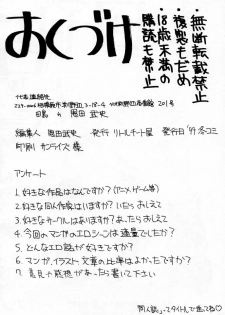 おくづけ
・無断転載禁止
・複製もだめ
・18歳未満の
購読も禁止
代表連絡先
201号
編集人 恩田武史 発行 リトルチート屋 発行日 '99 冬コミ
印刷 サンライズ
アンケート
1.好きな作品はなんですか?(アニメ・ゲーム等)
2.好きな同人作家はいますか?いたらおしえて
3.好きなサークルはありますか?あったらおしえて
4.今回のマンガのエロシーンは適量でしたか?
5.どんなエロ話が好きですか?
6.マンガ、イラスト、文章の比率はよかったですか?
7.意見や感想があったら書いて下さい